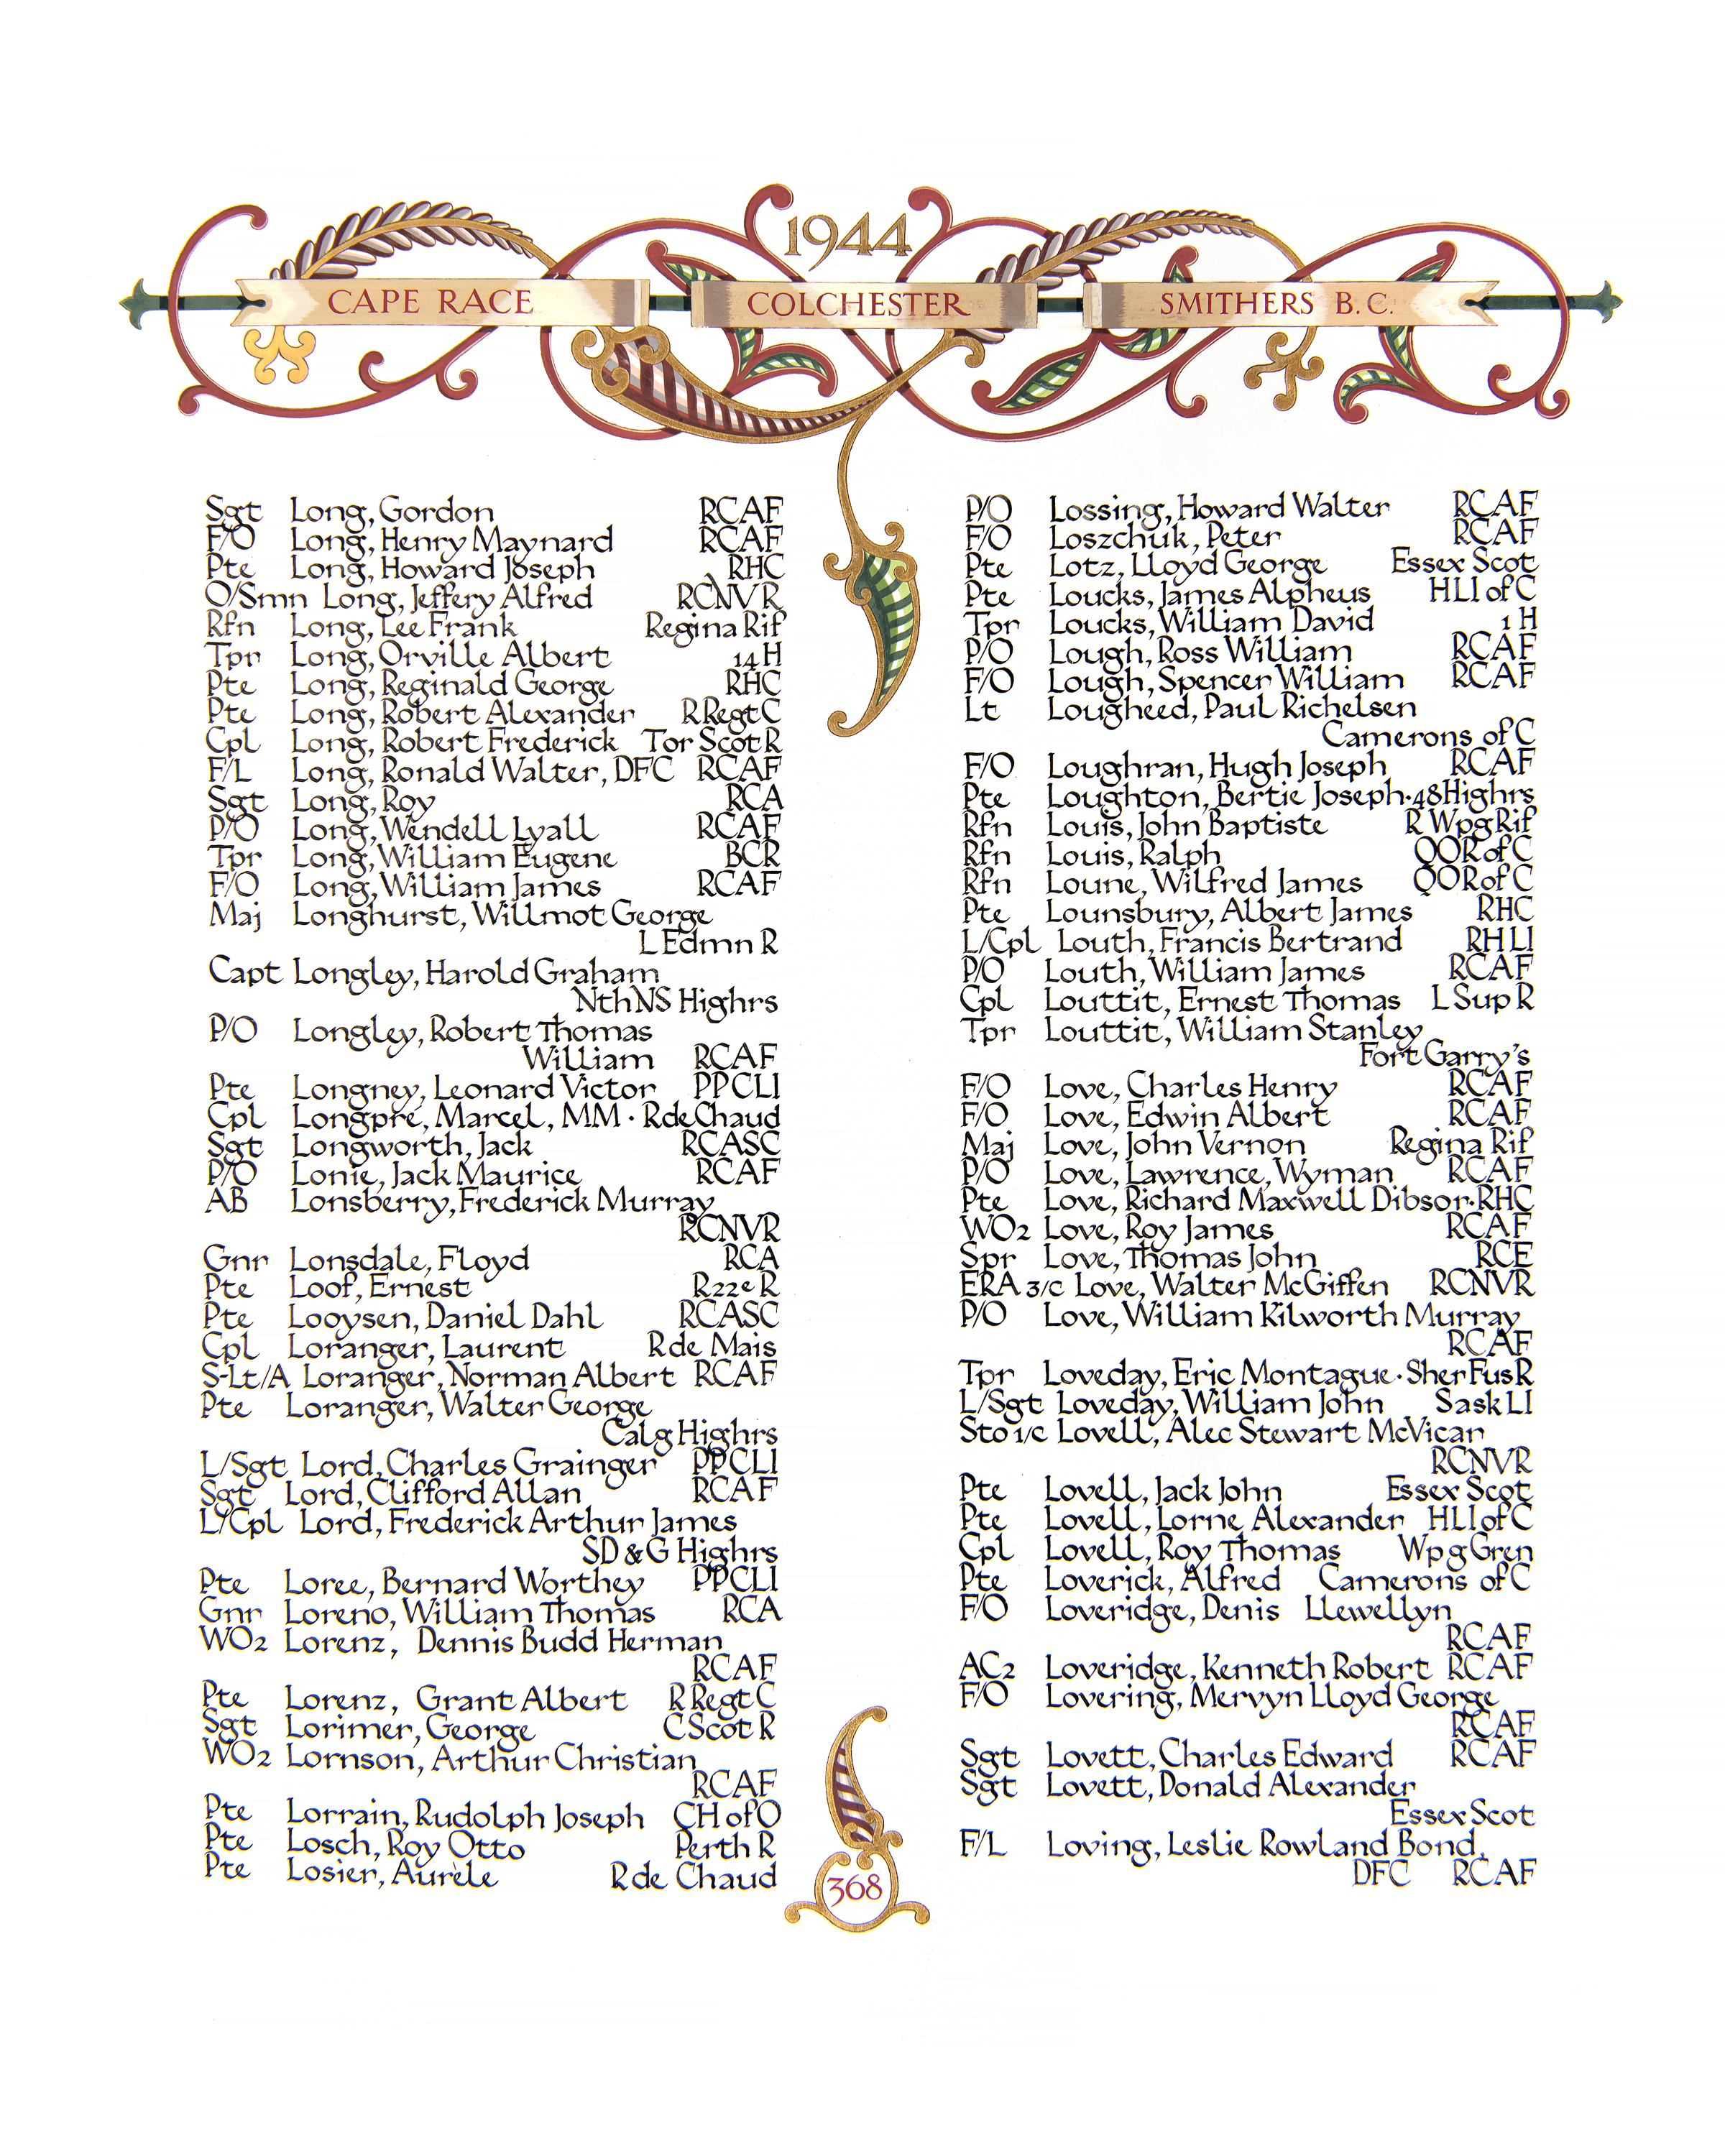 1944
CAPE RACE
COLCHESTER
SMITHERS B.C.
Sgt Long, Gordon RCAF
F/O Long, Henry Maynard RCAF
Pte Long, Howard Joseph RHC
O/Smn Long, Jeffery Alfred RCNVR
Rfn Long, Lee Frank Regina Rif
Tpr Long, Orville Albert 14 H
Pte Long, Reginald George RHC
Pte Long, Robert Alexander R Regt C
Cpl Long, Robert Frederick Tor Scot R
F/L Long, Ronald Walter, DFC RCAF
Sgt Long, Roy RCA
P/O Long, Wendell Lyall RCAF
Tpr Long, William Eugene BCR
F/O Long, William James RCAF
Maj Longhurst, Willmot George
L Edmn R
Capt Longley, Harold Graham
Nth NS Highrs
P/O Longley, Robert Thomas
William RCAF
Pte Longney, Leonard Victor PPCLI
Cpl Longpré, Marcel, MM · R de Chaud
Sgt Longworth, Jack RCASC
P/O Lonie, Jack Maurice RCAF
AB Lonsberry, Frederick Murray
RCNVR
Gnr Lonsdale, Floyd RCA
Pte Loof, Ernest R 22e R
Pte Looysen, Daniel Dahl RCASC
Cpl Loranger, Laurent R de Mais
S-Lt/A Loranger, Norman Albert RCAF
Pte Loranger, Walter George
Calg Highrs
L/Sgt Lord, Charles Grainger PPCLI
Sgt Lord, Clifford Allan RCAF
L/Cpl Lord, Frederick Arthur James
SD & G Highrs
Pte Loree, Bernard Worthey PPCLI
Gnr Loreno, William Thomas RCA
WO2 Lorenz, Dennis Budd Herman
RCAF
Pte Lorenz, Grant Albert R Regt C
Sgt Lorimer, George C Scot R
WO2 Lornson, Arthur Christian
RCAF
Pte Lorrain, Rudolph Joseph CH of O
Pte Losch, Roy Otto Perth R
Pte Losier, Aurèle R de Chaud
P/O Lossing, Howard Walter RCAF
F/O Loszchuk, Peter RCAF
Pte Lotz, Lloyd George Essex Scot
Pte Loucks, James Alpheus HLI of C
Tpr Loucks, William David 1 H
P/O Lough, Ross William RCAF
F/O Lough, Spencer William RCAF
Lt Lougheed, Paul Richelsen
Camerons of C
F/O Loughran, Hugh Joseph RCAF
Pte Loughton, Bertie Joseph · 48 Highrs
Rfn Louis, John Baptiste R Wpg Rif
Rfn Louis, Ralph QOR of C
Rfn Loune, Wilfred James QOR of C
Pte Lounsbury, Albert James RHC
L/Cpl Louth, Francis Bertrand RHLI
P/O Louth, William James RCAF
Cpl Louttit, Ernest Thomas L Sup R
Tpr Louttit, William Stanley
Fort Garry's
F/O Love, Charles Henry RCAF
F/O Love, Edwin Albert RCAF
Maj Love, John Vernon Regina Rif
P/O Love, Lawrence, Wyman RCAF
Pte Love, Richard Maxwell Dibsor · RHC
WO2 Love, Roy James RCAF
Spr Love, Thomas John RCE
ERA 3/c Love, Walter McGiffen RCNVR
P/O Love, William Kilworth Murray
RCAF
Tpr Loveday, Eric Montague · Sher Fus R
L/Sgt Loveday, William John Sask LI
Sto 1/c Lovell, Alec Stewart McVicar
RCNVR
Pte Lovell, Jack John Essex Scot
Pte Lovell, Lorne Alexander HLI of C
Cpl Lovell, Roy Thomas Wpg Gren
Pte Loverick, Alfred Camerons of C
F/O Loveridge, Denis Llewellyn
RCAF
AC2 Loveridge, Kenneth Robert RCAF
F/O Lovering, Mervyn Lloyd George
RCAF
Sgt Lovett, Charles Edward RCAF
Sgt Lovett, Donald Alexander
Essex Scot
F/L Loving, Leslie Rowland Bond,
DFC RCAF
368